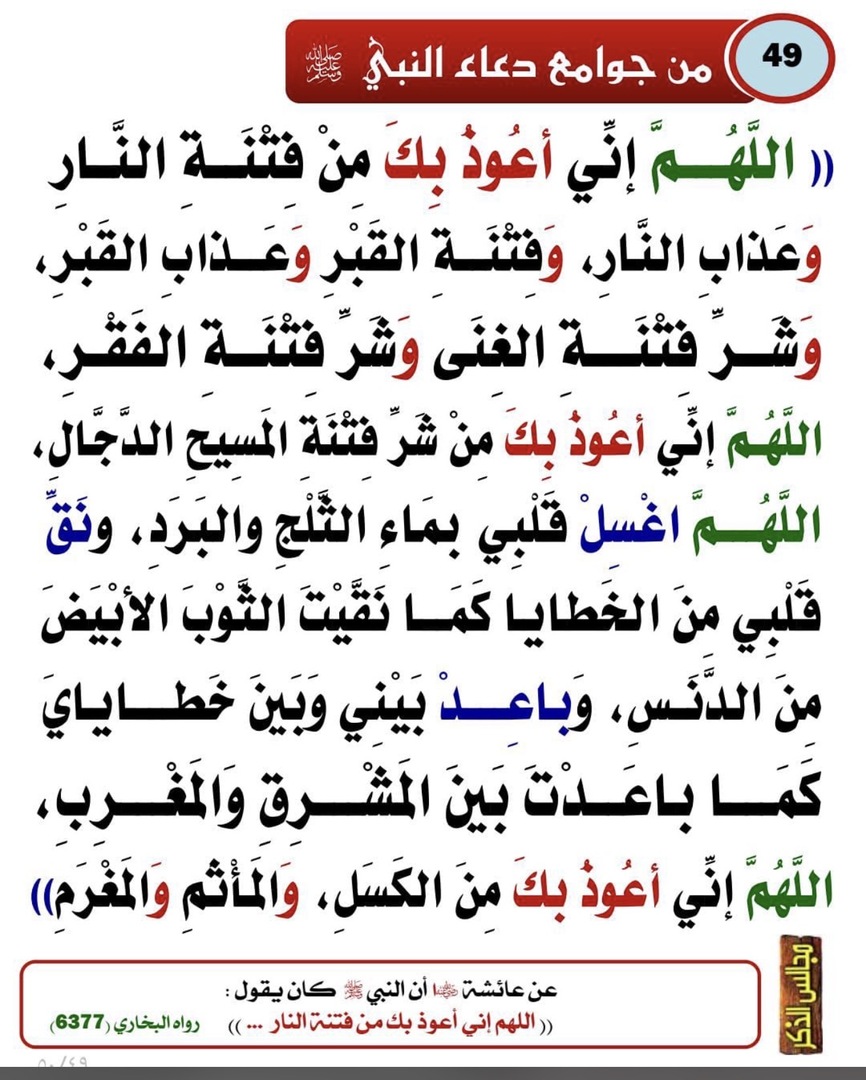 49
من جوامع دعاء النبي ﷺ
(( اللَّهُـــمَّ إنِّي أعُوذُ بِكَ مِنْ فِتْنَـــةِ النَّارِ
وَعَذابِ النَّارِ، وَفِتْنَـــةِ القَبْرِ وَعَـــذابِ القَبْرِ،
وَشَـــرِّ فِتْنَـــةِ الغِنَى وَشَرِّ فِتْنَـــةِ الفَقْـــرِ،
اللَّهُمَّ إنِّي أعُوذُ بِكَ مِنْ شَرِّ فِتْنَةِ المَسِيحِ الدَّجَّالِ،
اللَّهُـــمَّ اغْسِلْ قَلْبِي بمَاءِ الثَّلْجِ والبَرَدِ، ونَقِّ
قَلْبِي مِنَ الخَطايـا كَمَـــا نَقَّيْتَ الثَّوْبَ الأبْيَضَ
مِنَ الدَّنَـسِ، وَباعِـــدْ بَيْنِي وَبَينَ خَطـــايايَ
كَمَـــا باعَـــدْتَ بَينَ المَشْـــرِقِ وَالمَغْـــرِبِ،
اللَّهُمَّ إنِّي أعُوذُ بكَ مِنَ الكَسَلِ، وَالمَأْثَمِ وَالمَغْرَمِ))
مجالس الذكر
عن عائشة رضي الله عنها أن النبي ﷺ كان يقول :
(( اللهم إني أعوذ بك من فتنة النار ... )) رواه البخاري (6377)
٥٠/٤٩